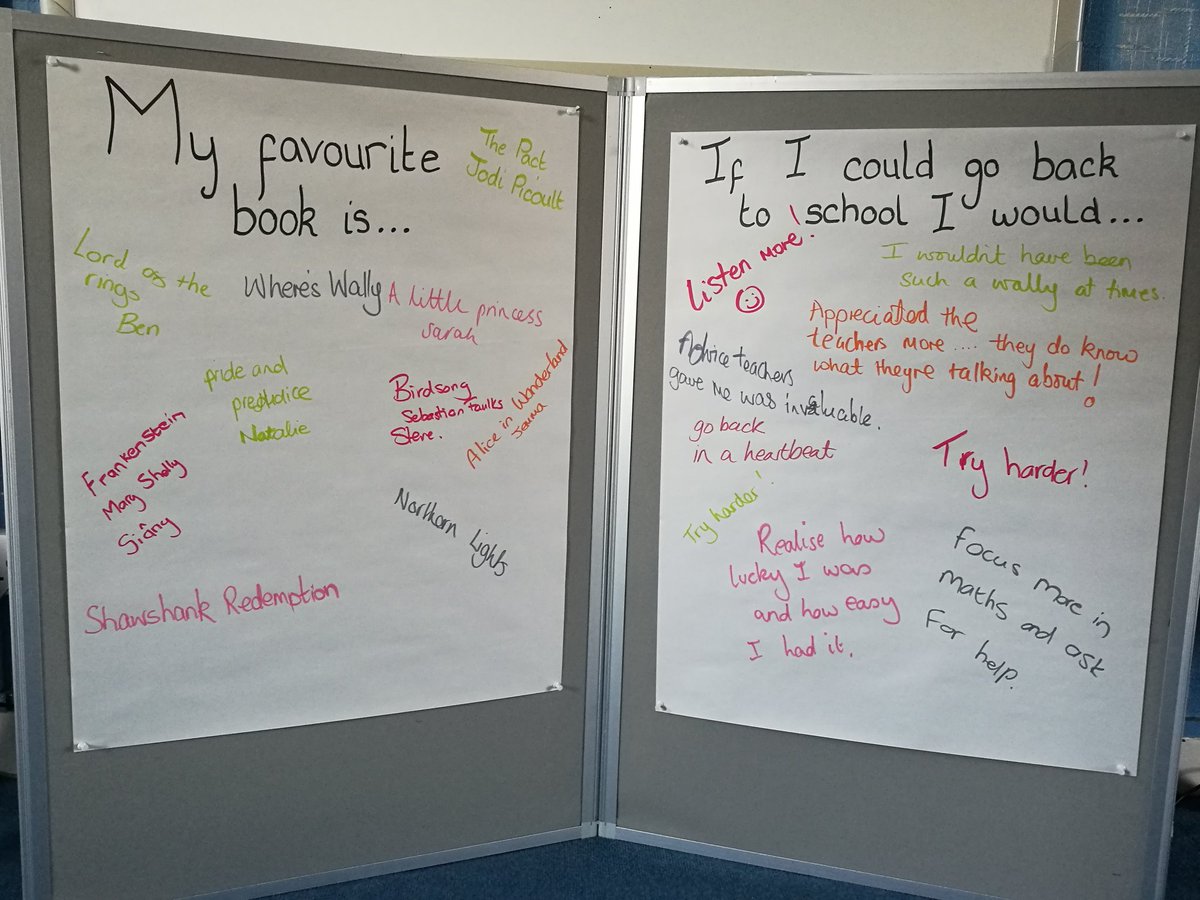 My favourite
book is...
The Pact
Jodi Picoult
Lord of the
rings
Ben
Where's Wally
A little princess
sarah
pride and
prejudice
Natalie
Birdsong
Sebastian faulks
Steve.
Alice in Wonderland
Frankenstein
Mary Shelly
Siâny
Northern Lights
Shawshank Redemption
If I could go back
to school I would...
Listen more!
I wouldn't have been
such a wally at times.
Appreciated the
teachers more .... they do know
what theyre talking about!
Advice teachers
gave me was invaluable.
go back
in a heartbeat
Try harder!
Try harder!
Realise how
lucky I was
and how easy
I had it.
Focus more in
maths and ask
For help.